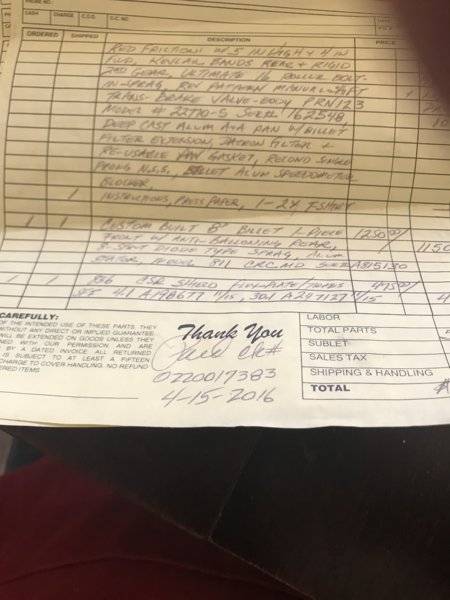 PHONE NO.
CASH CHARGE C.O.D.
ORDERED SHIPPED DESCRIPTION PRICE
RED FRICTIONS W/ 5 IN HIGH & 4 IN
FWD, KEVLAR BANDS REAR & RIGID
2ND GEAR, ULTIMATE 16 ROLLER BOLT-
IN-SPRAG, REV PATTERN MANUAL SHIFT
TRANS-BRAKE VALVE-BODY PRN123
MODEL # 22710-5 162548,
DEEP CAST ALUM PAN W/ BILLET
FILTER EXTENSION, DACRON FILTER &
RE-USABLE PAN GASKET, SINGLE
PRONG N.S.S., BILLET ALUM SPEEDOMETER
BLOCKER,
1 INSTRUCTIONS, PRESS PAPER, 1-2X T-SHIRT
1 1 CUSTOM BUILT 8" BILLET 1-PIECE 1250
FRONT W/ ANTI-BALLOONING REAR, 1150
DIODE TYPE SPRAG, ALUM
STATOR, MODEL 811 CRC.MD A815130
1 1 CSR SHIELD 475
SFI 4.1 A178677
CAREFULLY:
OF THE INTENDED USE OF THESE PARTS, THEY
WITHOUT ANY DIRECT OR IMPLIED GUARANTEE.
WILL BE EXTENDED ON GOODS UNLESS THEY
NED WITH OUR PERMISSION AND ARE
BY A DATED INVOICE. ALL RETURNED
IS SUBJECT TO AT LEAST A FIFTEEN
CHARGE TO COVER HANDLING. NO REFUND
RED ITEMS
Thank You
0220017383
4-15-2016
LABOR
TOTAL PARTS
SUBLET
SALES TAX
SHIPPING & HANDLING
TOTAL